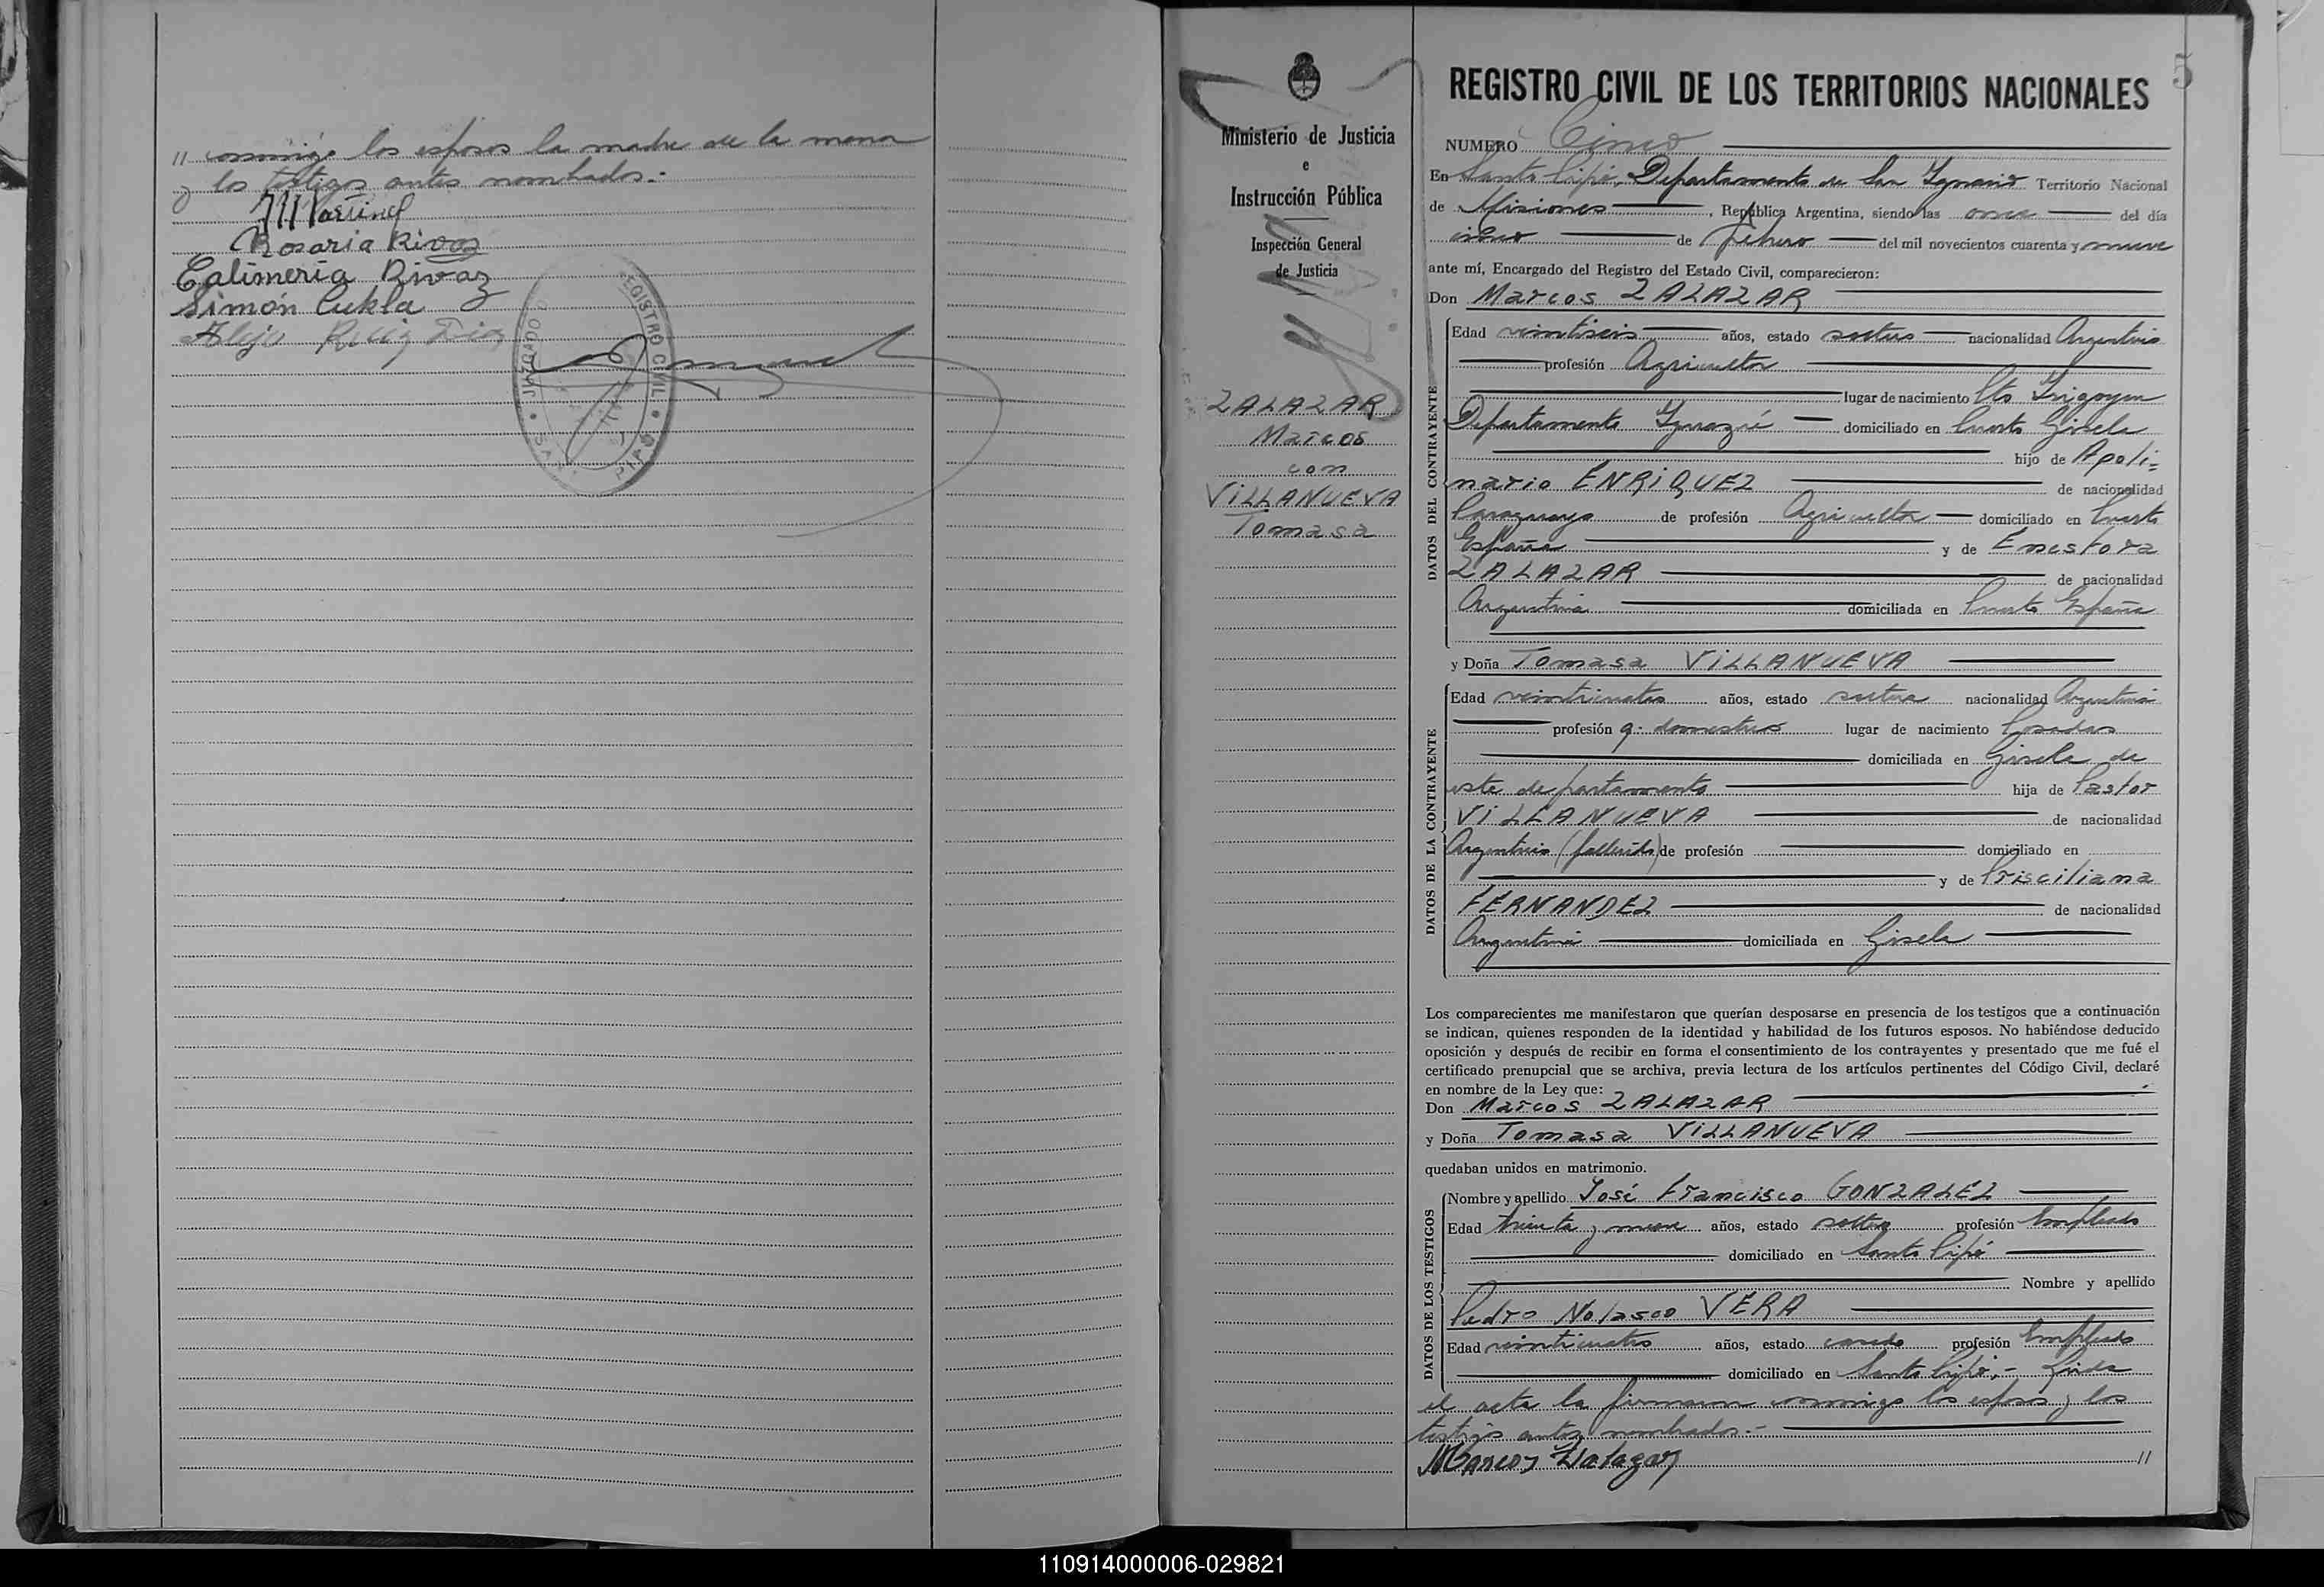 // conmigo los esposos la madre de la menor
y los testigos antes nombrados.-
Rosaria Rivas
Calimeria Rivaz
Simón Cukla
Alejo Ruiz Diaz
JUZGADO
REGISTRO CIVIL
5
Ministerio de Justicia
e
Instrucción Pública
Inspección General
de Justicia
ZALAZAR
Marcos
con
VILLANUEVA
Tomasa
REGISTRO CIVIL DE LOS TERRITORIOS NACIONALES
NUMERO Cinco
En Santo Pipó, Departamento de San Ignacio Territorio Nacional
de Misiones, República Argentina, siendo las once del día
cinco de febrero del mil novecientos cuarenta y nueve
ante mí, Encargado del Registro del Estado Civil, comparecieron:
Don Marcos ZALAZAR
DATOS DEL CONTRAYENTE
Edad veintiseis años, estado soltero nacionalidad Argentino
profesión Agricultor
lugar de nacimiento Pto Irigoyen
Departamento Iguazú domiciliado en Puerto Gisela
hijo de Apoli=
nario ENRIQUEZ de nacionalidad
Paraguayo de profesión Agricultor domiciliado en Puerto
España y de Enestora
ZALAZAR de nacionalidad
Argentina domiciliada en Puerto España
y Doña Tomasa VILLANUEVA
DATOS DE LA CONTRAYENTE
Edad veinticuatro años, estado soltera nacionalidad Argentina
profesión q. domesticos lugar de nacimiento Posadas
domiciliada en Gisela de
este departamento hija de Pastor
VILLANUEVA de nacionalidad
Argentino (fallecido) de profesión domiciliado en
y de Prisciliana
FERNANDEZ de nacionalidad
Argentina domiciliada en Gisela
Los comparecientes me manifestaron que querían desposarse en presencia de los testigos que a continuación
se indican, quienes responden de la identidad y habilidad de los futuros esposos. No habiéndose deducido
oposición y después de recibir en forma el consentimiento de los contrayentes y presentado que me fué el
certificado prenupcial que se archiva, previa lectura de los artículos pertinentes del Código Civil, declaré
en nombre de la Ley que:
Don Marcos ZALAZAR
y Doña Tomasa VILLANUEVA
quedaban unidos en matrimonio.
DATOS DE LOS TESTIGOS
Nombre y apellido José Francisco GONZALEZ
Edad treinta y nueve años, estado soltero profesión Empleado
domiciliado en Santo Pipó
Nombre y apellido
Pedro Nolasco VERA
Edad veinticuatro años, estado casado profesión Empleado
domiciliado en Santo Pipó.- Leida
el acta la firmaron conmigo los esposos y los
testigos antes nombrados.-
Marcos Zalazar //
110914000006-029821